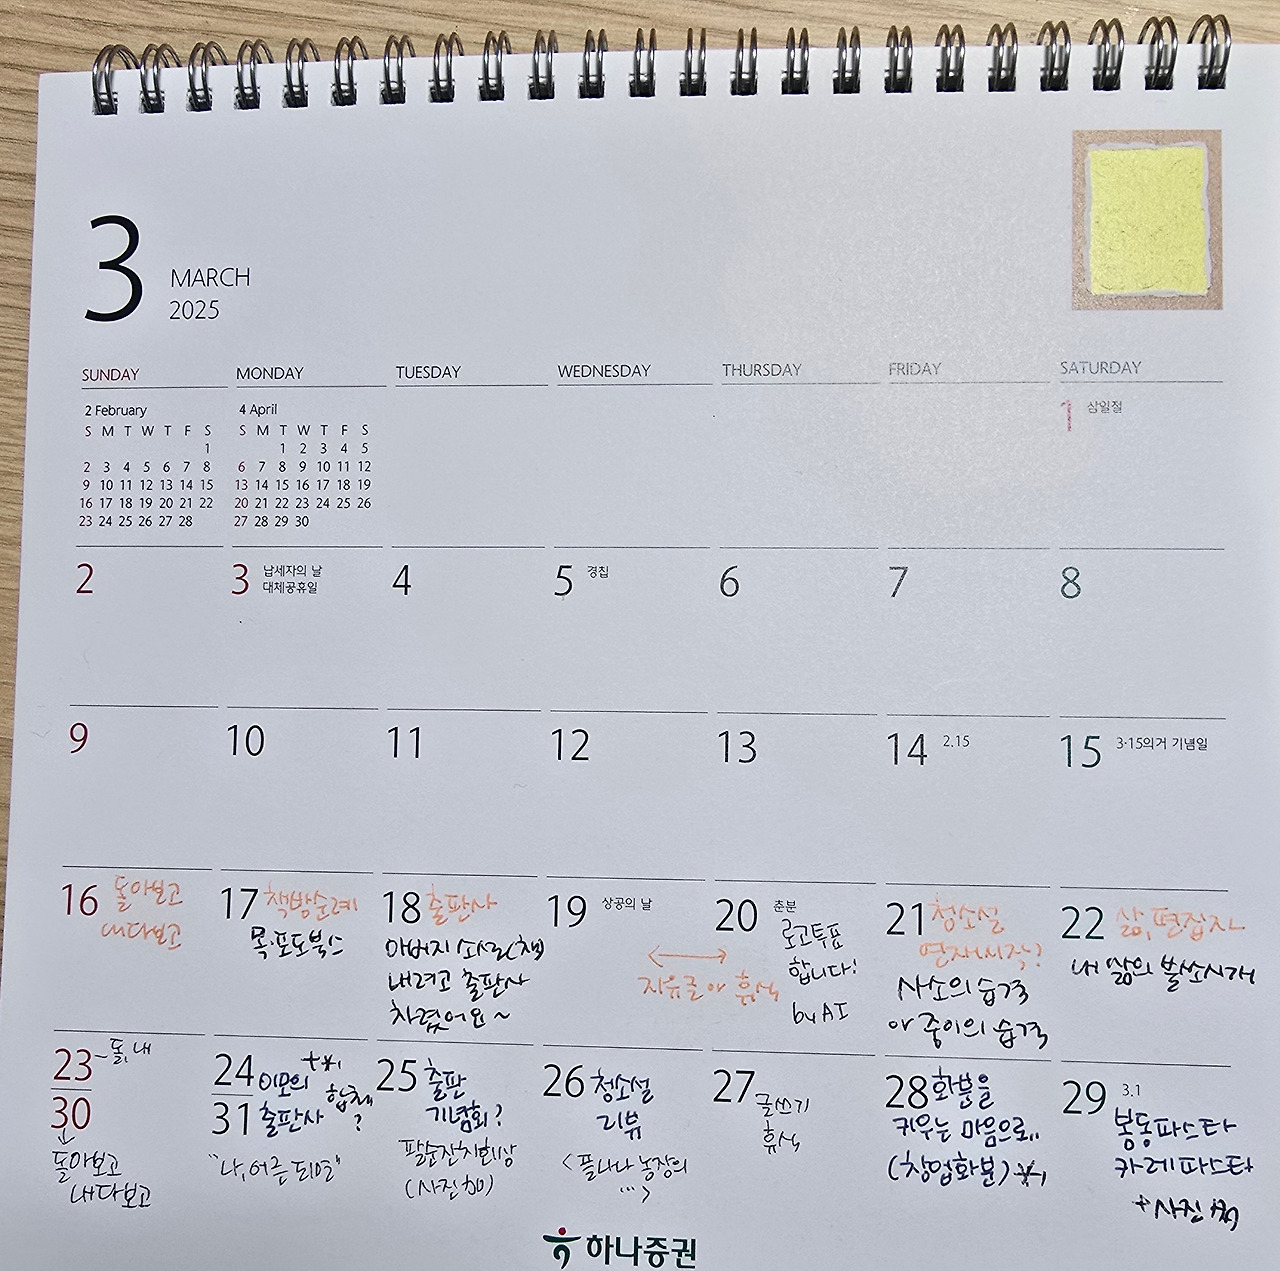 3
MARCH
2025
SUNDAY MONDAY TUESDAY WEDNESDAY THURSDAY FRIDAY SATURDAY
2 February
S M T W T F S
1
2 3 4 5 6 7 8
9 10 11 12 13 14 15
16 17 18 19 20 21 22
23 24 25 26 27 28
4 April
S M T W T F S
1 2 3 4 5
6 7 8 9 10 11 12
13 14 15 16 17 18 19
20 21 22 23 24 25 26
27 28 29 30
1 삼일절
2
3 납세자의 날
대체공휴일
4
5 경칩
6
7
8
9
10
11
12
13
14 2.15
15 3·15의거 기념일
16 돌아보고
내다보고
17 책방순례
목·포도북스
18 출판사
아버지 소설(책)
내려고 출판사
차렸어요~
19 상공의 날
자유글 아 휴식
20 춘분
로고투표
합니다!
by AI
21 청소설
연재시작?
사소의 습격
아 중이의 습격
22 삶, 편집자
내 삶의 불쏘시개
23 돌, 내
30
돌아보고
내다보고
24 이모의
31 출판사
합체
?
"나, 어른 되면"
25 출판
기념회?
팔순잔치회상
26 청소설
리뷰
<플나나 농장의
...>
27
글쓰기
휴식
28 화분을
키우는 마음으로..
(창업화분)
29 3.1
봉동파스타
카레파스타
+사진
하나증권